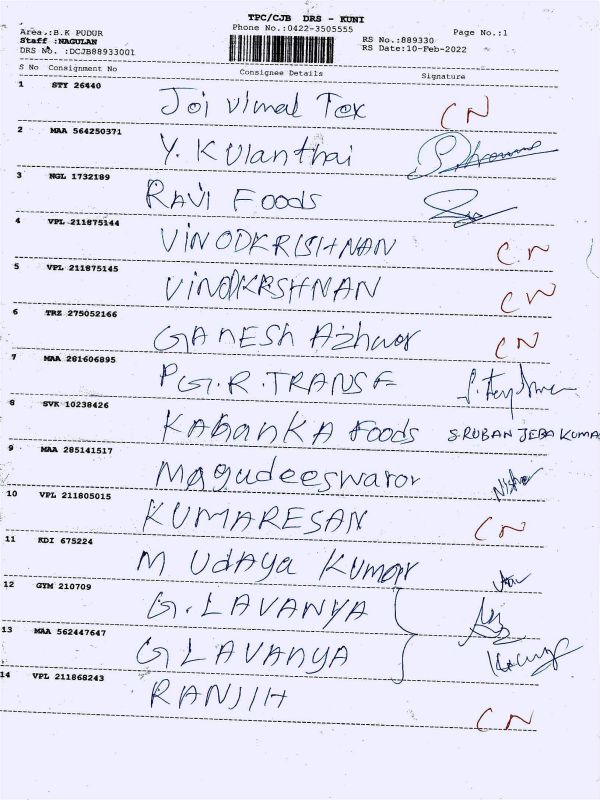 TPC/CJB DRS - KUNI
Phone No.:0422-3505555
Area :B.K PUDUR
Staff :NAGULAN
DRS No. :DCJB88933001
RS No.:889330
RS Date:10-Feb-2022
Page No.:1
S No Consignment No Consignee Details Signature
1 STY 26440 Joi vimal Tex CN
2 MAA 564250371 Y. Kulanthai
3 NGL 1732189 RAVI Foods
4 VPL 211875144 VINODKRISHNAN CN
5 VPL 211875145 VINODKRSHNAN CN
6 TRZ 275052166 GANESH Azhwar CN
7 MAA 281606895 P G.R.TRANSF
8 SVK 10238426 KabanKA Foods S.RUBAN JEBA KUMA
9 MAA 285141517 Magudeeswaror
10 VPL 211805015 KUMARESAN CN
11 KDI 675224 M UdAYa Kumar
12 GYM 210709 G.LAVANYA
13 MAA 562447647 G LAVANYA
14 VPL 211868243 RANJIH CN